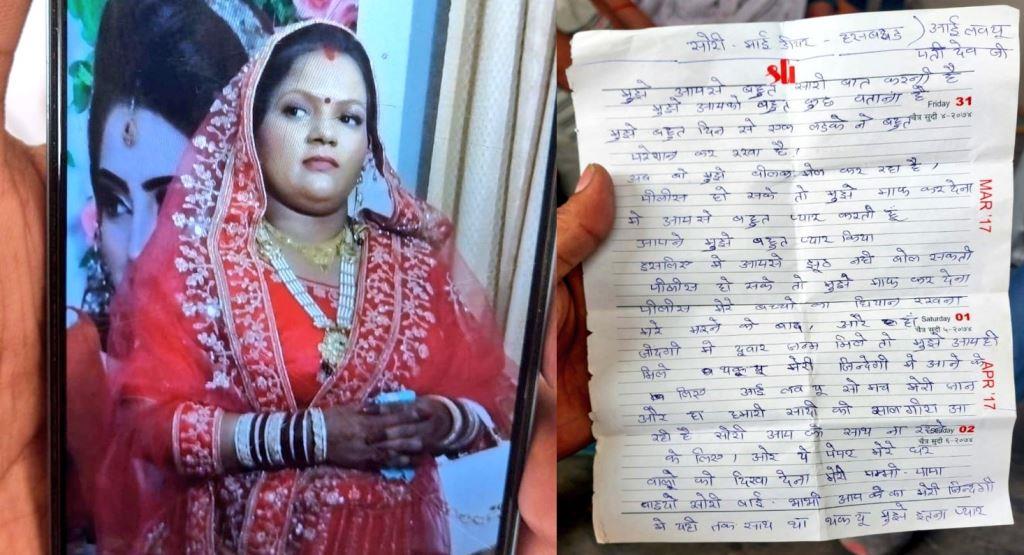 सोरी - माई डीयर - हसबण्ड ) आई लवयू
पती देव जी
sli
मुझे आपसे बहुत सारी बात करनी है
मुझे आपको बहुत कुछ बताना है
Friday 31
चैत्र सुदी ४-२०७४
मुझे बहुत दिन से एक लड़के ने बहुत
परेशान कर रखा है,
अब वो मुझे बलीक मेल कर रहा है,
पीलीस हो सके तो मुझे माफ कर देना
MAR '17
मे आपसे बहुत प्यार करती हूँ
आपने मुझे बहुत प्यार किया
इसलिए मे आपसे झूठ नही बोल सकती
पीलीस हो सके तो मुझे माफ कर देना
पीलीस मेरे बच्चो का धियान रखना
मेरे मरने के बाद, और हाँ
Saturday 01
चैत्र सुदी ५-२०७४
जीदगी मे दुवार जन्म मिले तो मुझे आप ही
मिले थक्यू मेरी जिन्देगी मे आने के
लिए आई लव यू सो मच मेरी जान
APR '17
और हा हमारी सादी की सालगीरा आ
रही है सोरी आप के साथ ना रहने
Sunday 02
चैत्र सुदी ६-२०७४
के लिए, ओर ये पेपर मेरे घर
वालो को दिखा देना मेरी मम्मी-पापा
सोरी बाई-भाभी आप का मेरी जिन्दगी
मे यही तक साथ था थक्यू मुझे इतना प्यार